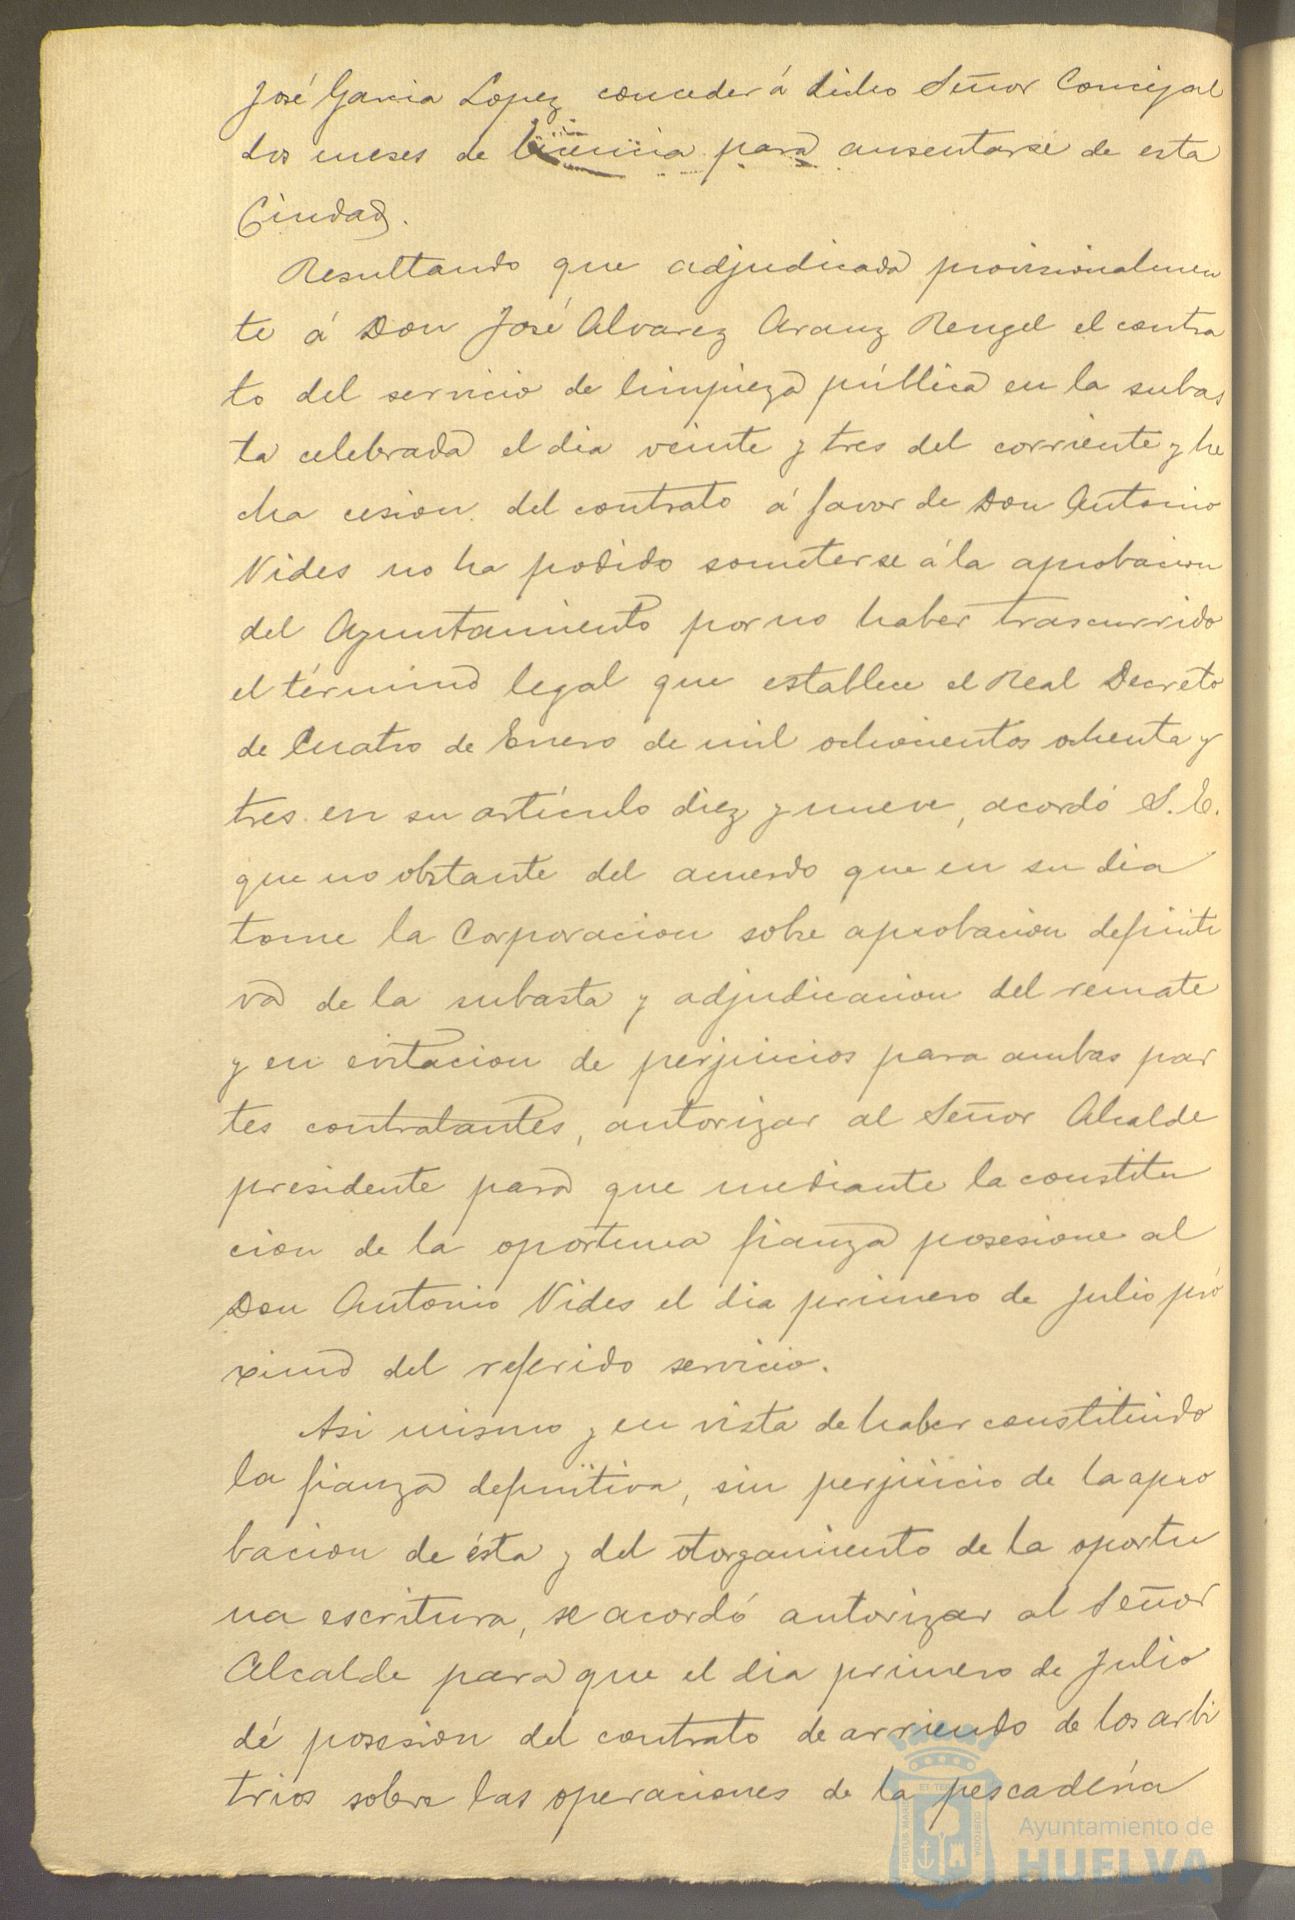 José Garcia Lopez conceder á dicho Señor Concejal
dos meses de licencia para ausentarse de esta
Ciudad.
Resultando que adjudicada provisionalmen
te á Don José Alvarez Aranz Rengel el contra
to del servicio de limpieza pública en la subas
ta celebrada el dia veinte y tres del corriente y he
cha cesion del contrato á favor de Don Antonio
Vides no ha podido someterse á la aprobacion
del Ayuntamiento por no haber trascurrido
el término legal que establece el Real Decreto
de Cuatro de Enero de mil ochocientos ochenta y
tres en su artículo diez y nueve, acordó S. E.
que no obstante del acuerdo que en su dia
tome la Corporacion sobre aprobacion definiti
va de la subasta y adjudicacion del remate
y en evitacion de perjuicios para ambas par
tes contratantes, autorizar al Señor Alcalde
presidente para que mediante la constitu
cion de la oportuna fianza posesione al
Don Antonio Vides el dia primero de Julio pró
ximo del referido servicio.
Asi mismo y en vista de haber constituido
la fianza definitiva, sin perjuicio de la apro
bacion de ésta y del otorgamiento de la oportu
na escritura, se acordó autorizar al Señor
Alcalde para que el dia primero de Julio
dé posesion del contrato de arriendo de los arbi
trios sobre las operaciones de la pescadería
Ayuntamiento de
HUELVA